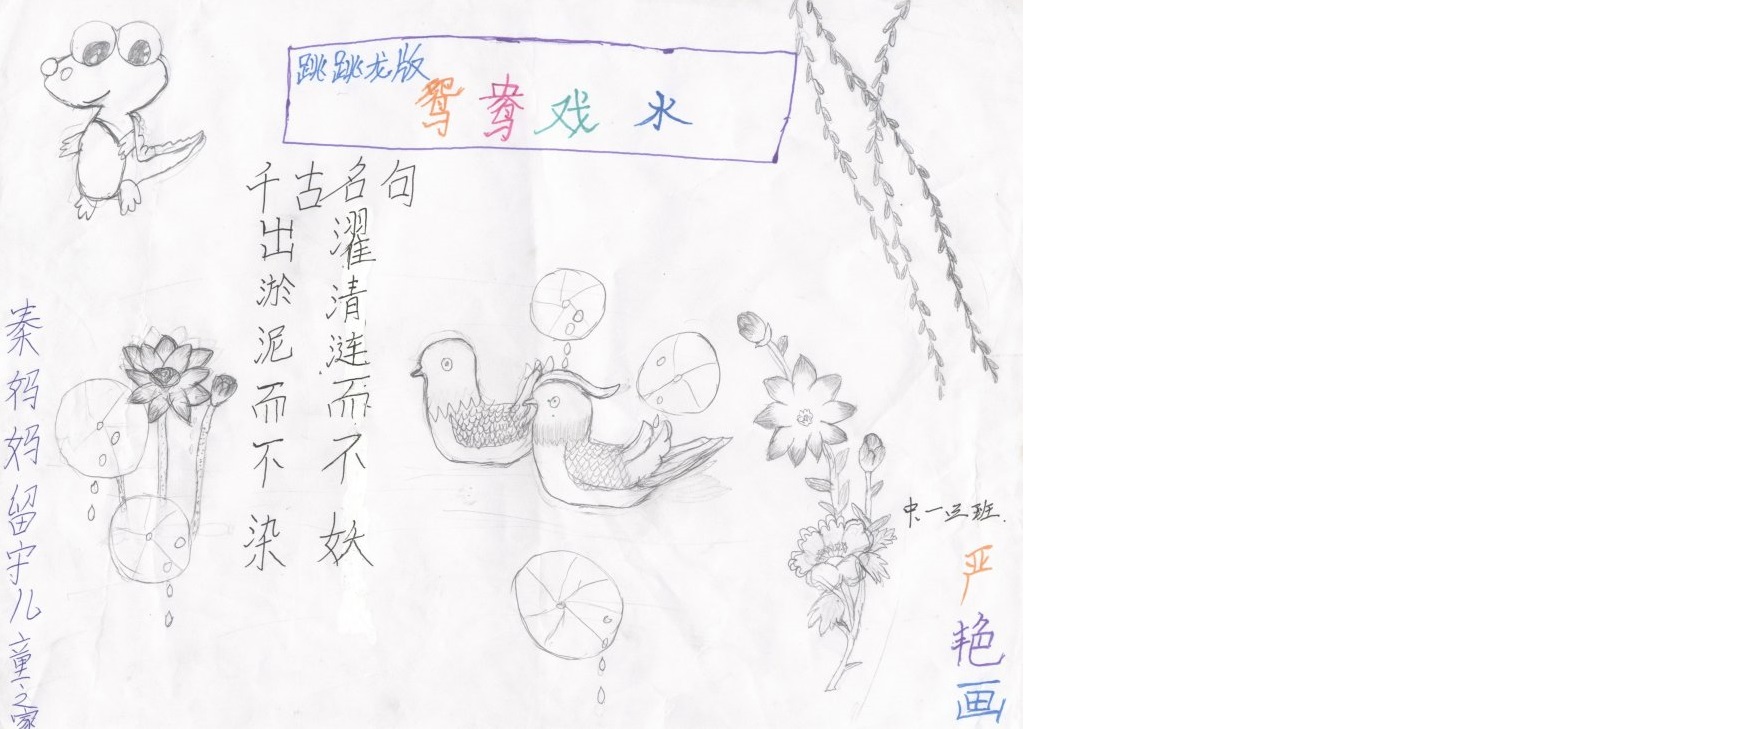 跳跳龙版
鸳鸯戏水
千古名句
出淤泥而不染
濯清涟而不妖
秦妈妈留守儿童之家
中一三班.
严艳画